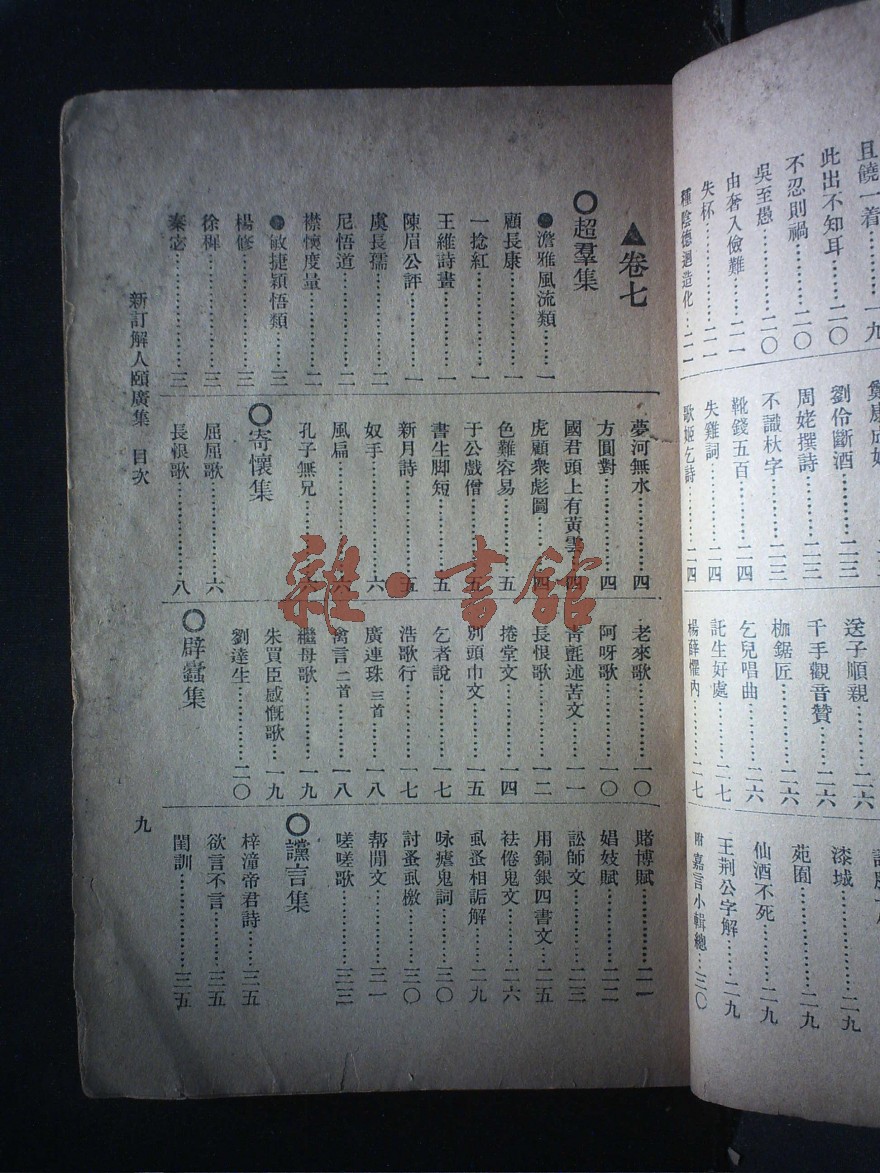 且饒一着……一九
此出不知耳……二〇
不忍則禍……二〇
吳至愚……二〇
由奢入儉難……二一
失杯……二一
種陰德迴造化…二一
劉伶斷酒……二三
周姥撰詩……二三
不識杕字……二三
靴錢五百……二四
失雞詞……二四
歌姬乞詩……二四
送子順親……二六
千手觀音贊……二六
枷鋸匠……二六
乞兒唱曲……二六
託生好處……二七
楊薛懼內……二七
漆城……二九
苑囿……二九
仙酒不死……二九
王荊公字解……二九
附嘉言小輯總…三〇
▲卷七
〇超羣集
●澹雅風流類……一
顧長康……一
一捻紅……一
王維詩畫……一
陳眉公評……一
虞長孺……二
尼悟道……二
襟懷度量……二
●敏捷穎悟類……三
楊修……三
徐穉……三
秦宓……三
夢河無水……四
方圓對……四
國君頭上有黃雲…四
虎顧衆彪圖……四
色難容易……五
于公戲僧……五
書生脚短……五
新月詩……五
奴手……六
風扁……六
孔子無兄……六
〇寄懷集
屈屈歌……六
長恨歌……八
老來歌……一〇
阿呀歌……一〇
青氈述苦文……一一
長恨歌……一二
捲堂文……一四
別頭巾文……一五
乞者說……一七
浩歌行……一七
廣連珠 三首……一八
禽言 二首……一八
繼母歌……一九
朱買臣感慨歌…一九
劉達生……二〇
〇辟蠹集
賭博賦……二一
娼妓賦……二二
訟師文……二三
用銅銀四書文…二五
祛倦鬼文……二六
虱蚤相詬解……二九
咏瘧鬼詞……三〇
討蚤虱檄……三〇
幫閒文……三一
嗟嗟歌……三三
〇讜言集
梓潼帝君詩……三五
欲言不言……三五
閨訓……三五
新訂解人頤廣集 目次
九
雜·書館